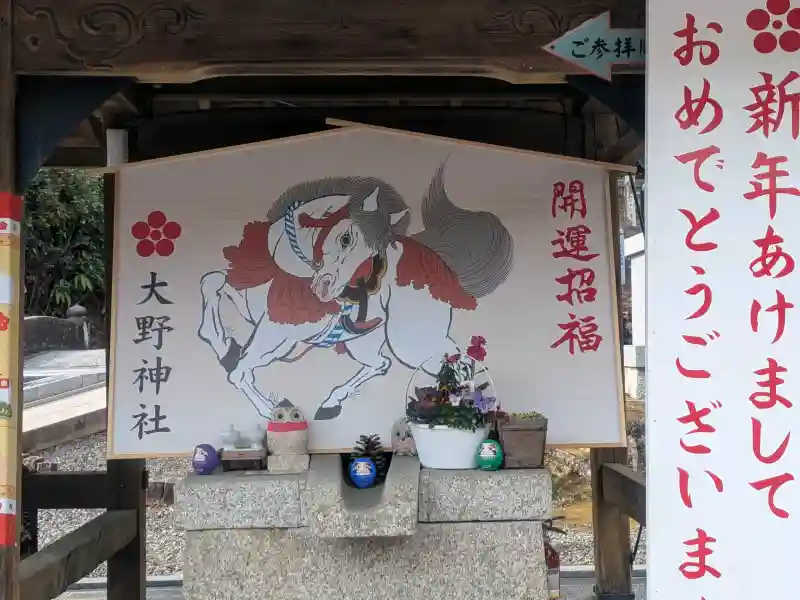 ご参拝
新年あけまして
おめでとうございま
開運招福
大野神社